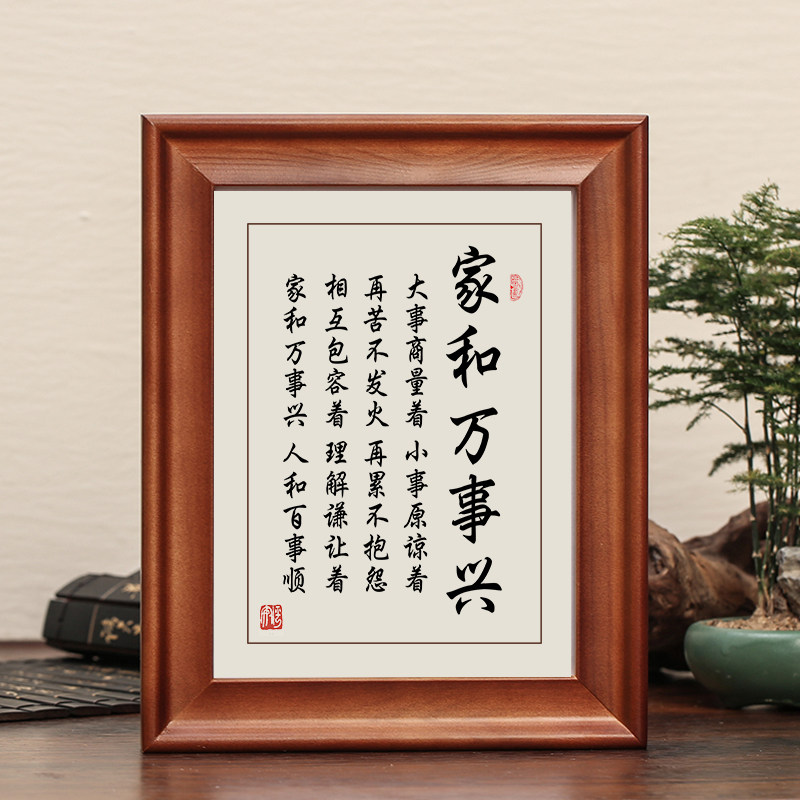 家和万事兴
大事商量着 小事原谅着
再苦不发火 再累不抱怨
相互包容着 理解谦让着
家和万事兴 人和百事顺